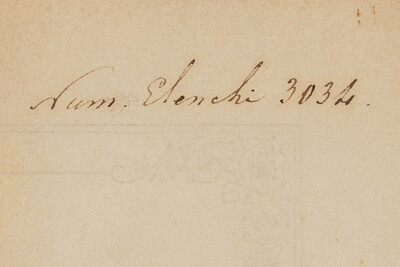 Num. Elenchi 3034.